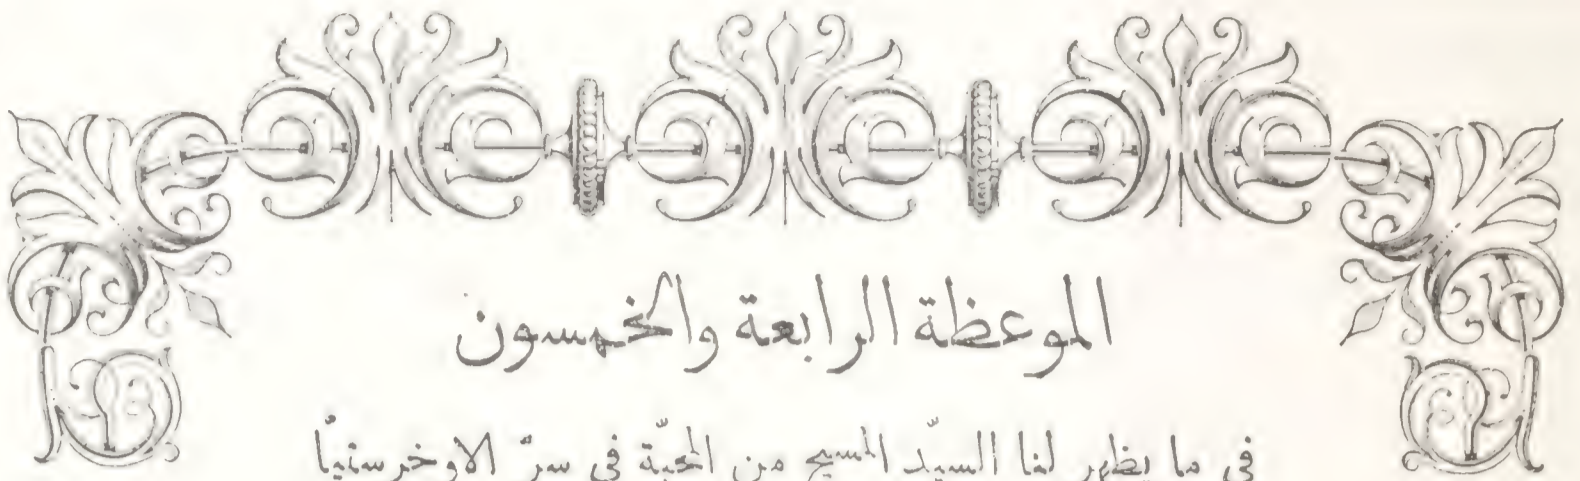 الموعظة الرابعة والخمسون
في ما يظهر لنا السيّد المسيح من المحبّة في سرّ الاوخرستيّا